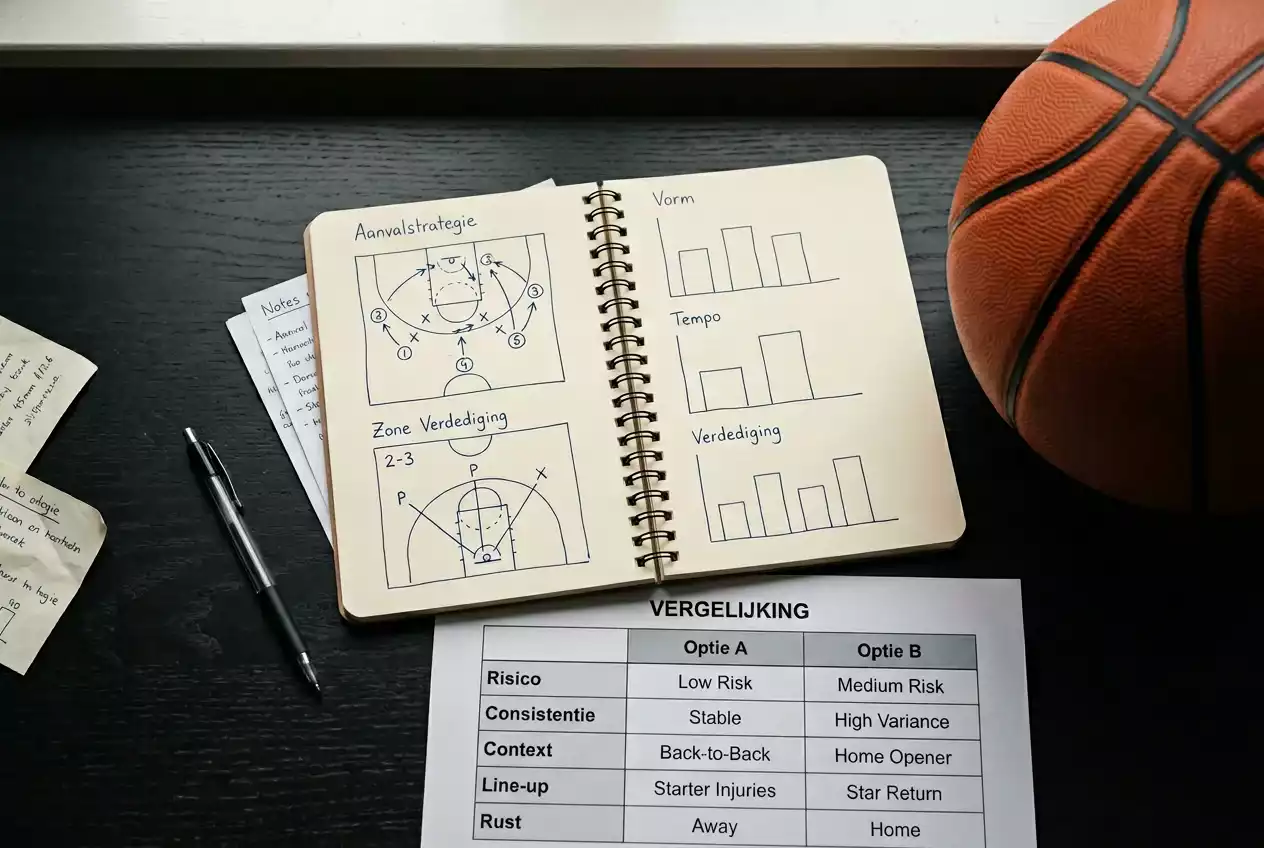 Aanvalstrategie
3
3
3
X
X
X
X
1
4
5
Zone Verdediging
2-3
P
P
X
Vorm
Tempo
Verdediging
Notes
- Aanval
VERGELIJKING
Optie A Optie B
Risico Low Risk Medium Risk
Consistentie Stable High Variance
Context Back-to-Back Home Opener
Line-up Starter Injuries Star Return
Rust Away Home